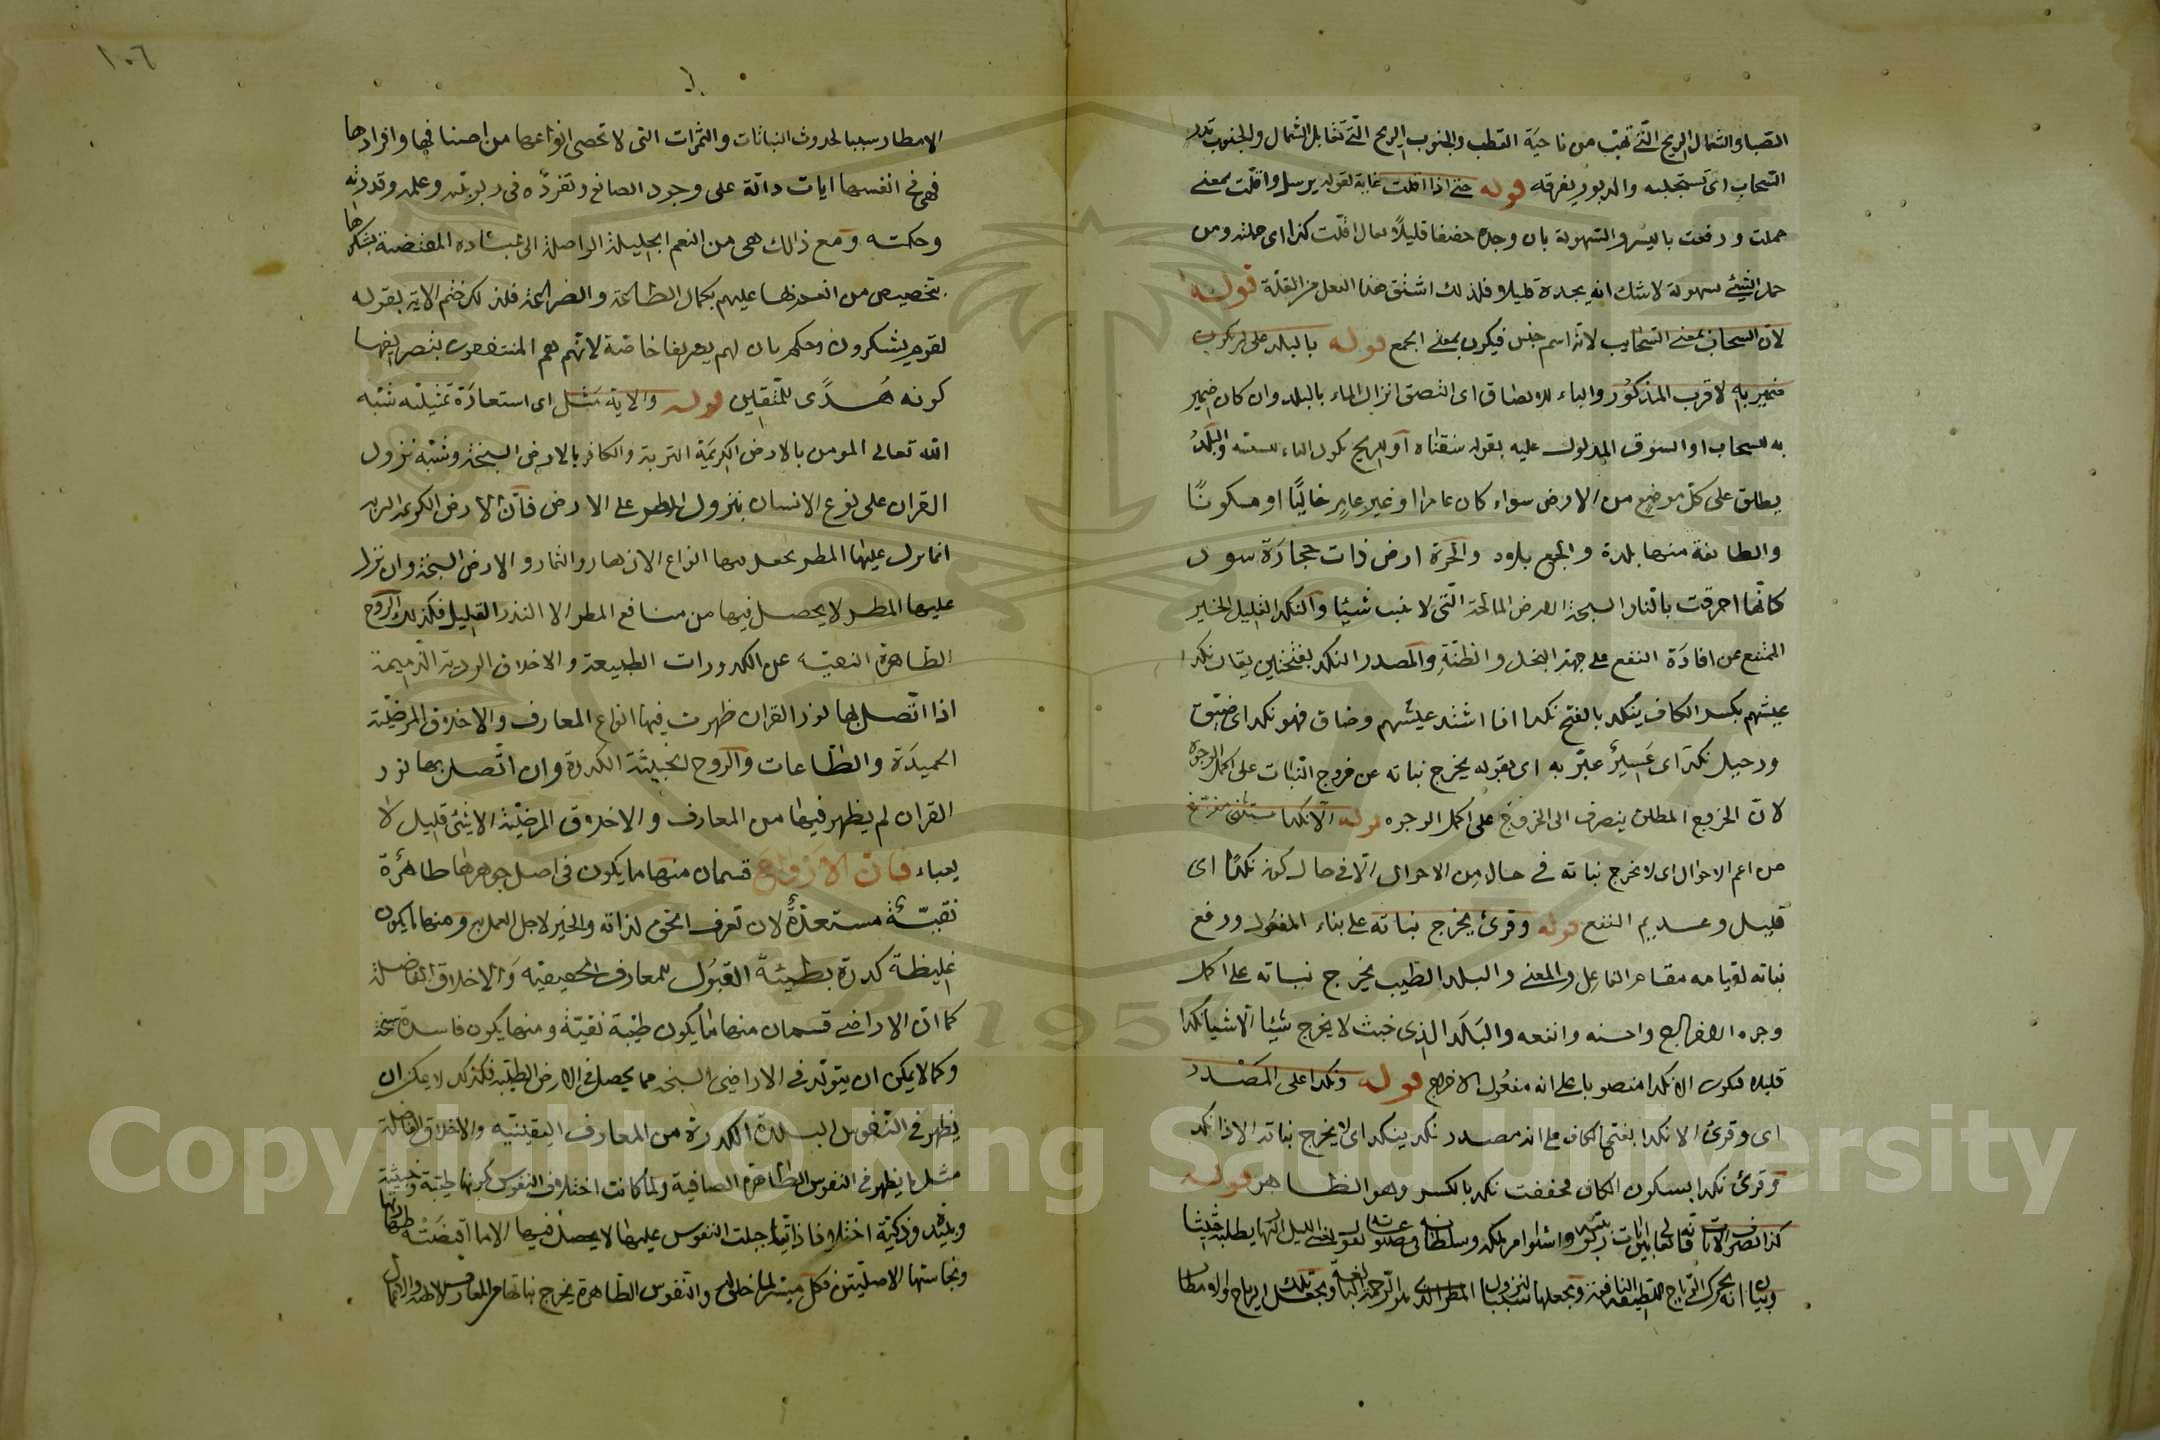 الصبا والشمال الريح التي تهب من ناحية القطب والجنوب الريح التي تقابل الشمال والجنوب تدر
السحاب اى تستجلبه والدبور يفرقه قوله حتى اذا اقلت غاية لقوله يرسل واقلت بمعنى
حملت ورفعت باليسر والسهولة بان وجده خفيفا قليلا يقال اقلت كذا اى حملته ومن
حمل الشيئ بسهولة لا شك انه يجده قليلا فلذلك اشتق هذا الفعل من القلة قوله
لان السحاب بمعنى السحايب لانه اسم جنس فيكون بمعنى الجمع قوله بالبلد على ان يكون
ضمير به لاقرب المذكور والباء للالصاق اى التصق انزال الماء بالبلد وان كان ضمير
به للسحاب او السوق المدلول عليه بقوله سقناه او للريح يكون الباء للسببية والبلد
يطلق على كل موضع من الارض سواء كان عامرا او غير عامر خاليا او مسكونا
والطايفة منها بلدة والجمع بلاد والحرة ارض ذات حجارة سود
كانها احرقت بالنار السبخة الارض المالحة التى لا تنبت شيئا والنكد القليل الخير
الممتنع عن افادة النفع على جهة البخل والظنة والمصدر النكد بفتحتين يقال نكدا
عيشهم بكسر الكاف ينكد بالفتح نكدا اذا اشتد عيشهم وضاق فهو نكد اى ضيق
ورجل نكد اى عسير عبر به اى بقوله يخرج نباته عن خروج النبات على اكمل الوجوه
لان الخروج المطلق ينصرف الى الخروج على اكمل الوجوه قوله الا نكدا مستثنى مفرغ
من اعم الاحوال اى لا يخرج نباته فى حال من الاحوال الا فى حال كونه نكدا اى
قليل وعديم النفع قوله وقرئ يخرج نباته على بناء المفعول ورفع
نباته لقيامه مقام الفاعل والمعنى والبلد الطيب يخرج نباته على اكمل
وجوه الاخراج واحسنه وانفعه والبلد الذى خبث لا يخرج شيئا الا شيا نكدا
قليلا فيكون الا نكدا منصوبا على انه مفعول الاخراج قوله ونكدا على المصدر
اى وقرئ الا نكدا بفتح الكاف على انه مصدر نكد ينكد اى لا يخرج نباته الا ذا نكد
وقرئ نكدا بسكون الكاف مخففت نكد بالكسر وهو الظاهر قوله
كذا نصرف الايات
وبيان انه يحرك الرياح اللطيفة النافعة ويجعلها سببا لنزول المطر الذى
الامطار سببا لحدوث النباتات والثمرات التى لا تحصى انواعها من اصنافها وافرادها
فهى فى انفسها ايات دالة على وجود الصانع وتفرده فى ربوبيته وعلمه وقدرته
وحكمته ومع ذالك هى من النعم الجليلة الواصلة الى عباده المقتضية بشكرها
بتخصيص من انعم بها عليهم بكمال الطاعة والضراعة فلذلك ختم الاية بقوله
لقوم يشكرون وحكم بان لهم بصر يفا خاصة لانهم هم المنتفعون بتصريفها
كونه هدى للمتقين قوله والاية مثل اى استعارة تمثيلية شبه
الله تعالى المومن بالارض الكريمة التربة والكافر بالارض السبخة وشبه نزول
القران على نوع الانسان بنزول المطر على الارض فان الارض الكريمة التربه
اذا نزل عليها المطر يحصل فيها انواع الازهار والثمار و الارض السبخة وان نزل
عليها المطر لا يحصل فيها من منافع المطر الا النذر القليل فكذلك الروح
الطاهرة النقية عن الكدورات الطبيعة والاخلاق الردية الذميمة
اذا اتصل بها نور القران ظهرت فيها انواع المعارف والاخلاق المرضية
الحميدة والطاعات والروح الخبيثة الكدرة وان اتصل بها نور
القران لم يظهر فيها من المعارف والاخلاق المرضية الا شئ قليل لا
يعباء فان الارواح قسمان منها ما يكون فى اصل جوهرها طاهرة
نقية مستعدة لان تعرف الحق لذاته والخير لاجل العمل به ومنها ما يكون
غليظة كدرة بطيئة القبول للمعارف الحقيقية والاخلاق الفاضلة
كما ان الاراضى قسمان منها ما يكون طيبة نقية ومنها يكون فاسدة سبخة
وكما لا يمكن ان يتولد فى الاراضى السبخة مما يحصل فى الارض الطيبة فكذلك لا يمكن ان
يظهر فى النفوس البليدة الكدرة من المعارف اليقينية والاخلاق الفاضلة
مثل ما يظهر فى النفوس الطاهرة الصافية ولما كانت اختلاف النفوس كونها طيبة وخبيثة
وبليدة وذكية اختلافا ذاتيا جبلت النفوس عليها لا يحصل فيها الا ما اقتضته طهارتها
ونجاستها الاصليتين فكل ميسر لما خلق له والنفوس الطاهرة يخرج نباتها من المعارف
١٠٦
Copyright © King Saud University
1957